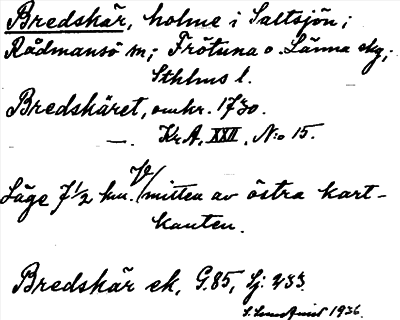 Bredskär, holme i Saltsjön;
Rådmansö sn; Frötuna o. Länna skg;
Sthlms l.
Bredskäret, omkr. 1730.
—. KrA, XXII, N:o 15.
Läge 7 1/2 km. V/ mitten av östra kart-
kanten.
Bredskär ek, G.85, Lj: 233.
1936.